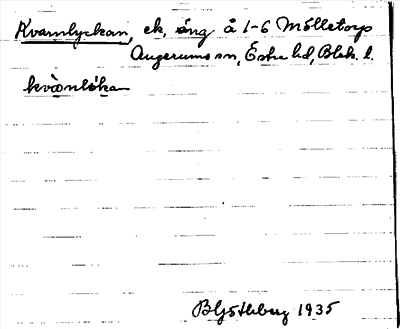 Kvarnlyckan, ek, äng å 1-6 Mölletorp
Augerums sn, Östra hd, Blek. l.
kvàɷnlöka
B Götlberg 1935